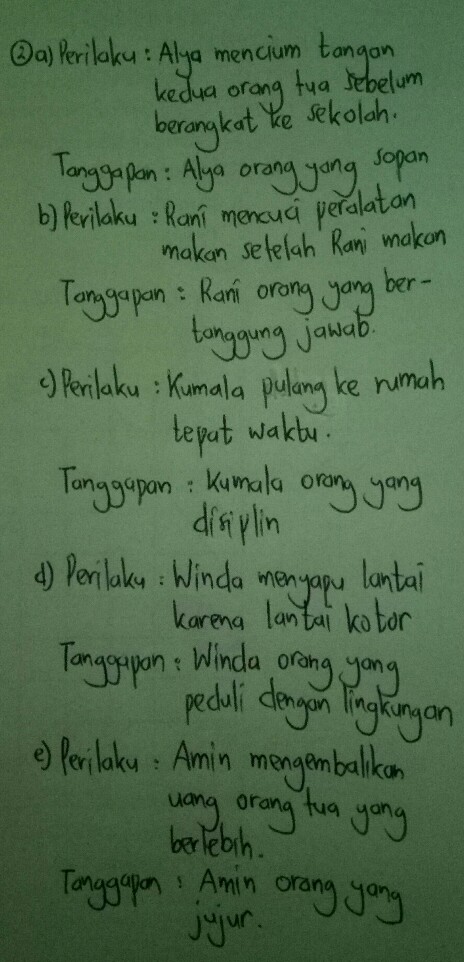 ② a) Perilaku : Alya mencium tangan
kedua orang tua sebelum
berangkat ke sekolah.
Tanggapan : Alya orang yang sopan
b) Perilaku : Rani mencuci peralatan
makan setelah Rani makan
Tanggapan : Rani orang yang ber-
tanggung jawab.
c) Perilaku : Kumala pulang ke rumah
tepat waktu.
Tanggapan : Kumala orang yang
disiplin
d) Perilaku : Winda menyapu lantai
karena lantai kotor
Tanggapan : Winda orang yang
peduli dengan lingkungan
e) Perilaku : Amin mengembalikan
uang orang tua yang
berlebih.
Tanggapan : Amin orang yang
jujur.